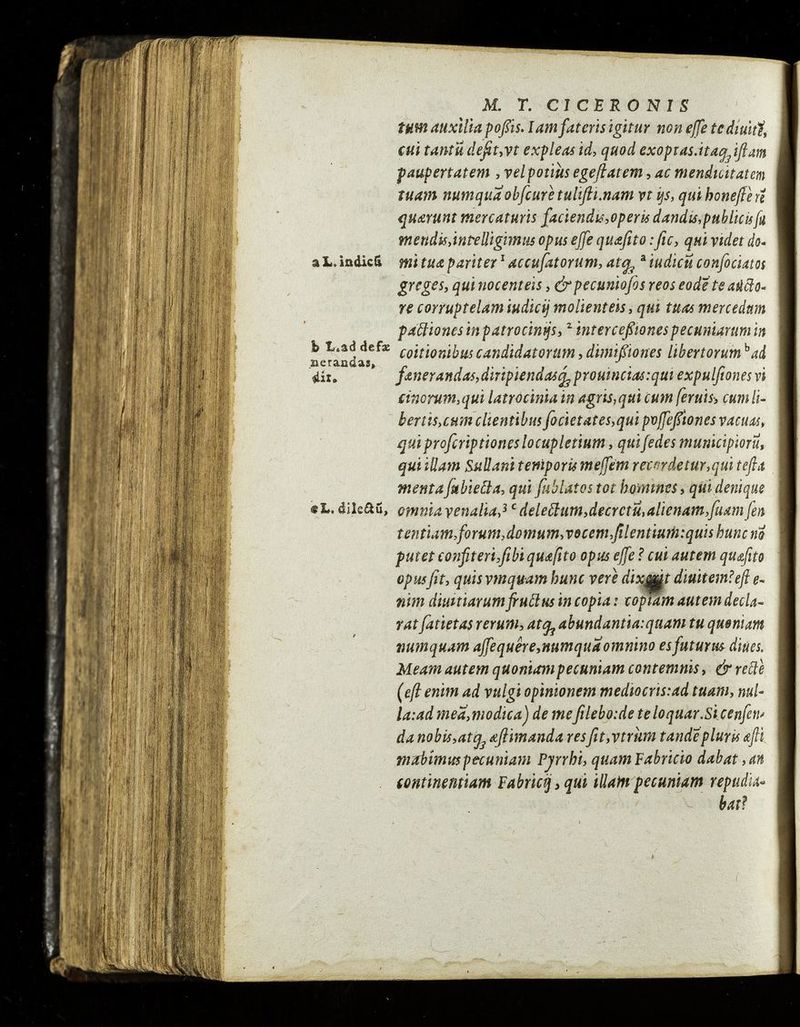 M. T. CICERONIS
tum auxilia poßis. Iam fateris igitur non esse te diuitẽ,
cui tantũ desit, vt expleas id, quod exoptas. itaq; istam
paupertatem, vel potiùs egestatem, ac mendicitatem
tuam numquã obscurè tulisti. nam vt ijs, qui honestè rẽ
quærunt mercaturis faciendis, operis dandis, publicis su
mendis, intelligimus opus esse quæsito: sic, qui videt do-
a L. indicũ
mi tuæ pariter ¹ accusatorum, atq; ª iudicũ consociatos
greges, qui nocenteis, & pecuniosos reos eodẽ te aucto-
re corruptelam iudicij molienteis, qui tuas mercedum
pactiones in patrocinijs, ² interceßiones pecuniarum in
b L. ad defæ
nerandas,
dir.
coitionibus candidatorum, dimißiones libertorum ᵇ ad
fænerandas, diripiendasq; prouincias: qui expulsiones vi
cinorum, qui latrocinia in agris, qui cum seruis, cum li-
bertis, cum clientibus societates, qui possessiones vacuas,
qui proscriptiones locupletium, qui sedes municipiorũ,
qui illam Sullani temporis messem recordetur, qui testa
menta subiecta, qui sublatos tot homines, qui denique
c L. dilectũ,
omnia venalia, ³ ᶜ delectum, decretũ, alienam, suam sen
tentiam, forum, domum, vocem, silentium: quis hunc nõ
putet confiteri, sibi quæsito opus esse? cui autem quæsito
opus sit, quis vmquam hunc verè dixerit diuitem? est e-
nim diuitiarum fructus in copia: copiam autem decla-
rat satietas rerum, atq; abundantia: quam tu quoniam
numquam assequêre, numquã omnino es futurus diues.
Meam autem quoniam pecuniam contemnis, & rectè
(est enim ad vulgi opinionem mediocris: ad tuam, nul-
la: ad meã, modica) de me silebo: de te loquar. Si censen-
da nobis, atq; æstimanda res sit, vtrùm tandẽ pluris æsti
mabimus pecuniam Pyrrhi, quam Fabricio dabat, an
continentiam Fabricij, qui illam pecuniam repudia-
bat?